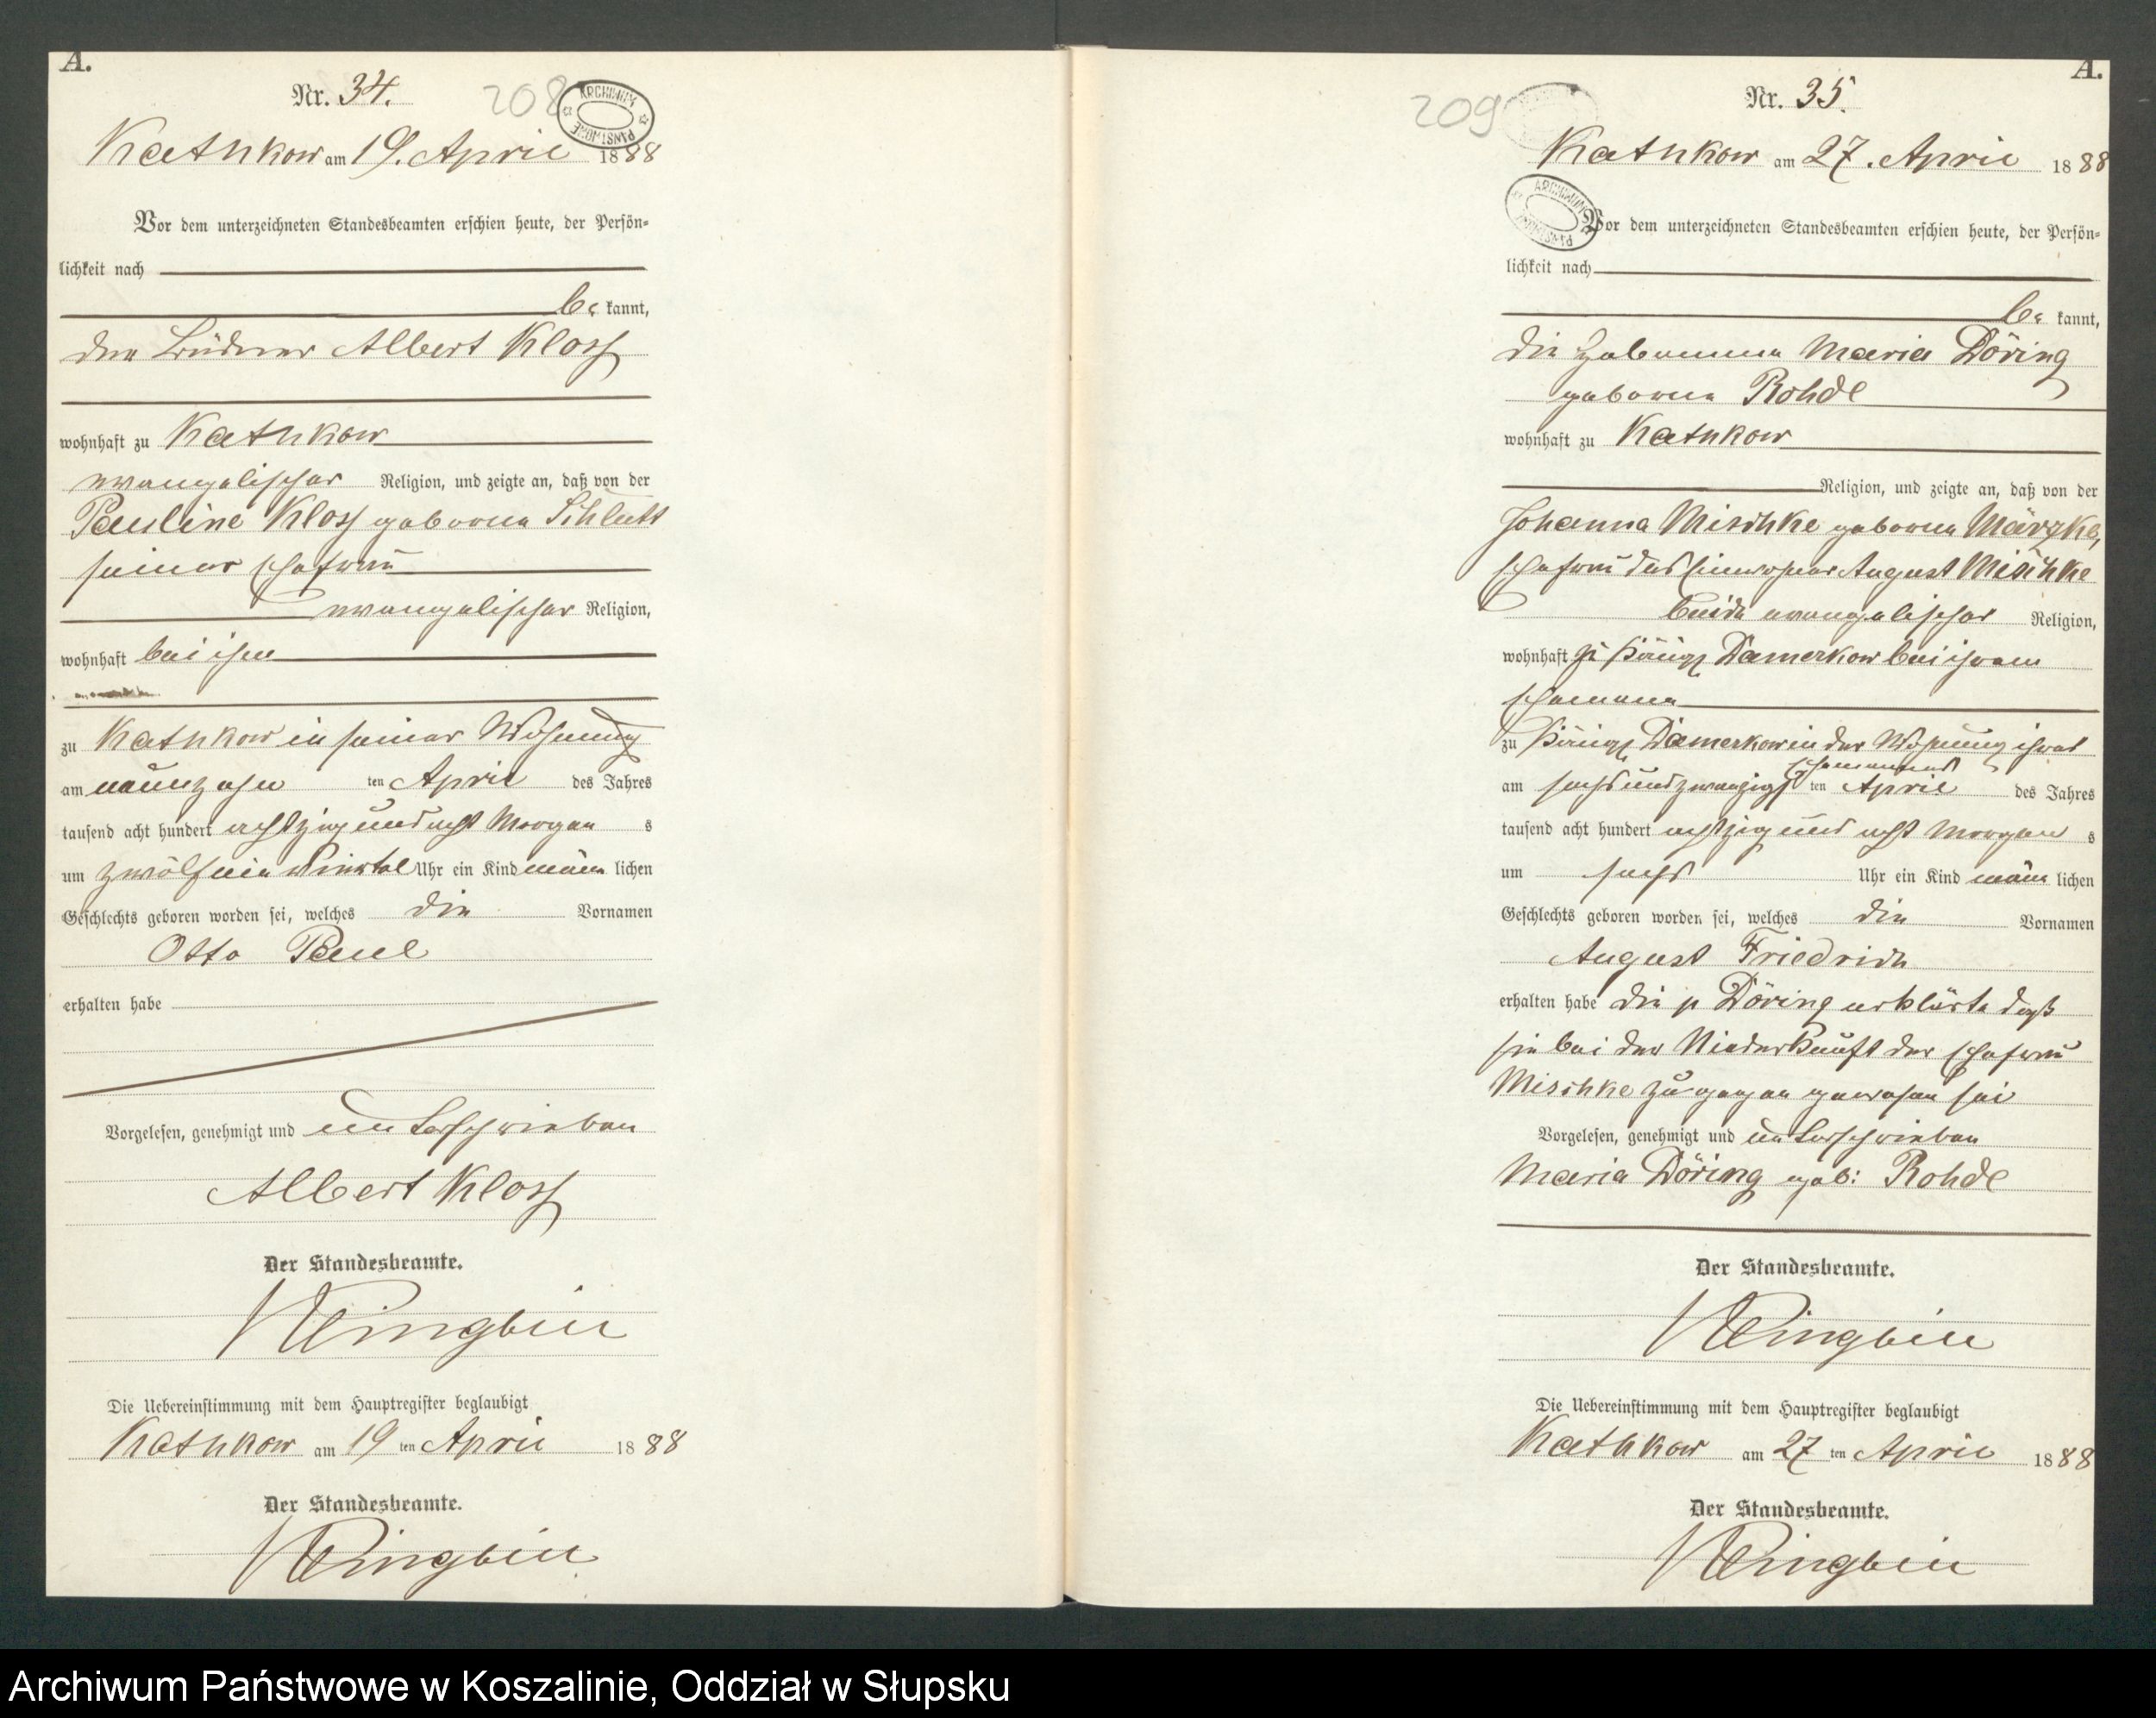 A.
Nr. 34.
208
ARCHIWUM PAŃSTWOWE
Kathkow am 19. April 1888
Vor dem unterzeichneten Standesbeamten erschien heute, der Persön-
lichkeit nach
be kannt,
der Büdner Albert Kloss
wohnhaft zu Kathkow
evangelischer Religion, und zeigte an, daß von der
Pauline Kloss geborene Schlutt
seiner Ehefrau
evangelischer Religion,
wohnhaft bei ihm
zu Kathkow in seiner Wohnung
am neunzehn ten April des Jahres
tausend acht hundert achtzig und acht Morgen s
um zwölfein Viertel Uhr ein Kind männ lichen
Geschlechts geboren worden sei, welches die Vornamen
Otto Paul
erhalten habe
Vorgelesen, genehmigt und unterschrieben
Albert Kloss
Der Standesbeamte.
Die Uebereinstimmung mit dem Hauptregister beglaubigt
Kathkow am 19 ten April 1888
Der Standesbeamte.
A.
Nr. 35.
209
Kathkow am 27. April 1888
ARCHIWUM PAŃSTWOWE
Vor dem unterzeichneten Standesbeamten erschien heute, der Persön-
lichkeit nach
be kannt,
die Hebamme Maria Döring
geborene Rohde
wohnhaft zu Kathkow
Religion, und zeigte an, daß von der
Johanna Mischke geborene Märzke,
Ehefrau des Einwohner August Mischke
beide evangelischer Religion,
wohnhaft zu Königl Damerkow bei ihrem
Ehemanne
zu Königl Damerkow in der Wohnung ihres
Ehemannes
am sechsundzwanzigs ten April des Jahres
tausend acht hundert achtzig und acht Morgen s
um sechs Uhr ein Kind männ lichen
Geschlechts geboren worden sei, welches die Vornamen
August Friedrich
erhalten habe die p Döring erklärte daß
sie bei der Niederkunft der Ehefrau
Mischke zugegen gewesen sei
Vorgelesen, genehmigt und unterschrieben
Maria Döring geb: Rohde
Der Standesbeamte.
Die Uebereinstimmung mit dem Hauptregister beglaubigt
Kathkow am 27 ten April 1888
Der Standesbeamte.
Archiwum Państwowe w Koszalinie, Oddział w Słupsku